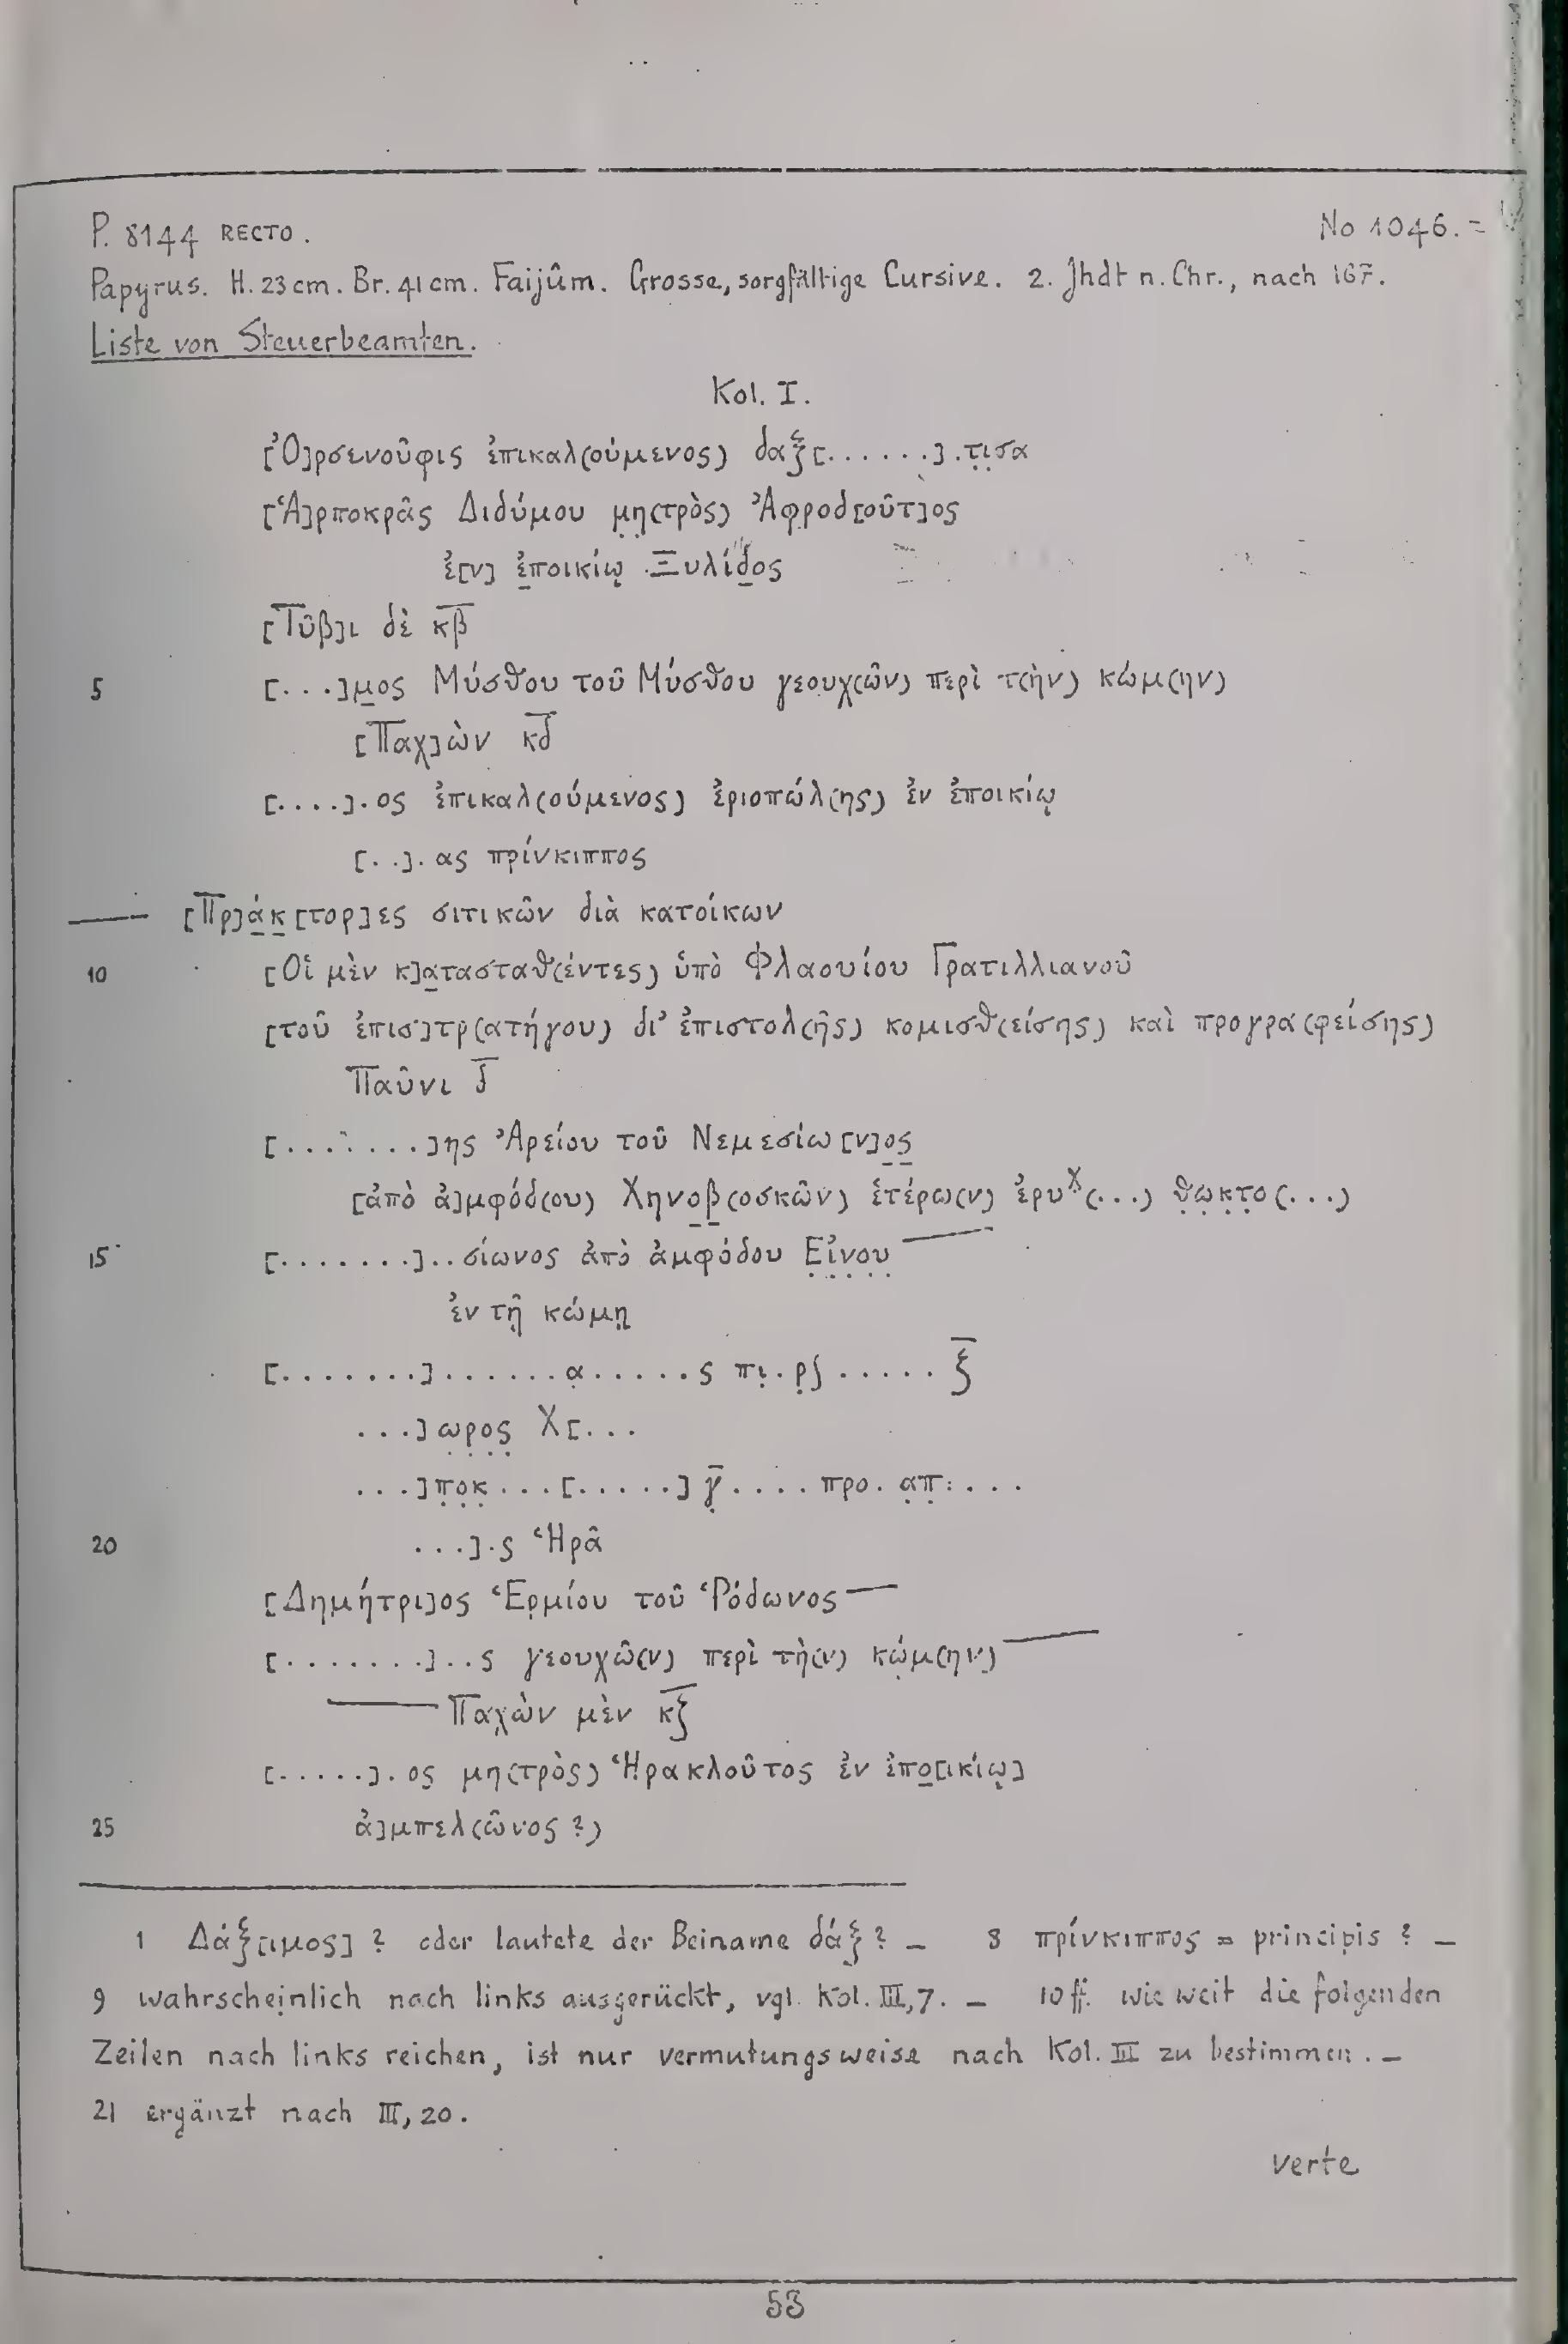 P. 8144 RECTO.
No 1046.
Papyrus. H. 23 cm. Br. 41 cm. Faijûm. Grosse, sorgfältige Cursive. 2. Jhdt n. Chr., nach 167.
Liste von Steuerbeamten.
Kol. I.
[Ὀ]ρσενοῦφις ἐπικαλ(ούμενος) δαξ[......].τ̣ι̣σα
[Ἁ]ρποκρᾶς Διδύμου μ̣η̣(τρὸς) Ἀφροδ[οῦτ]ος
ἐ[ν] ἐποικίῳ Ξυλίδος
[Τῦβ]ι δὲ κ̅β̅
5 [...]μος Μύσθου τοῦ Μύσθου γεουχ(ῶν) περὶ τ(ὴν) κώμ(ην)
[Παχ]ὼν κ̅δ̅
[....].ος ἐπικαλ(ούμενος) ἐριοπώλ(ης) ἐν ἐποικίῳ
[..].ας πρίνκιππος
[Πρ]άκ[τορ]ες σιτικῶν διὰ κατοίκων
10 [Οἱ μὲν κ]ατασταθ(έντες) ὑπὸ Φλαουίου Γρατιλλιανοῦ
[τοῦ ἐπισ]τρ(ατήγου) δι’ ἐπιστολ(ῆς) κομισθ(είσης) καὶ προγρα(φείσης)
Παῦνι δ̅
[........]ης Ἀρείου τοῦ Νεμεσίω[ν]ος
[ἀπὸ ἀ]μφόδ(ου) Χηνοβ(οσκῶν) ἑτέρω(ν) ἐρυχ(...) θ̣ω̣κ̣τ̣ο(...)
15 [.......]..σίωνος ἀπὸ ἀμφόδου Ε̣ἰ̣ν̣ο̣υ̣
ἐν τῇ κώμῃ
[.......].......α̣.....ς πι̣.ρ̣ʃ.....ξ̅
...]ω̣ρ̣ο̣ς̣ Χ[...
...]π̣ο̣κ̣...[.....]γ̣̅....προ.α̣π̣:...
20 ...].ς Ἡρᾶ
[Δημήτρι]ος Ἑρμίου τοῦ Ῥόδωνος
[.......]..ς γεουχῶ(ν) περὶ τὴ(ν) κώ̣μ(ην)
Παχὼν μὲν κ̅ζ̅
[.....].ος μη(τρὸς) Ἡρακλοῦτος ἐν ἐπο[ικίῳ]
25 ἀ]μπελ(ῶνος?)
1 Δάξ[ιμος]? oder lautete der Beiname δάξ? – 8 πρίνκιππος = principis? –
9 wahrscheinlich nach links ausgerückt, vgl. Kol. III, 7. – 10 ff. wie weit die folgenden
Zeilen nach links reichen, ist nur vermutungsweise nach Kol. III zu bestimmen. –
21 ergänzt nach III, 20.
verte
53